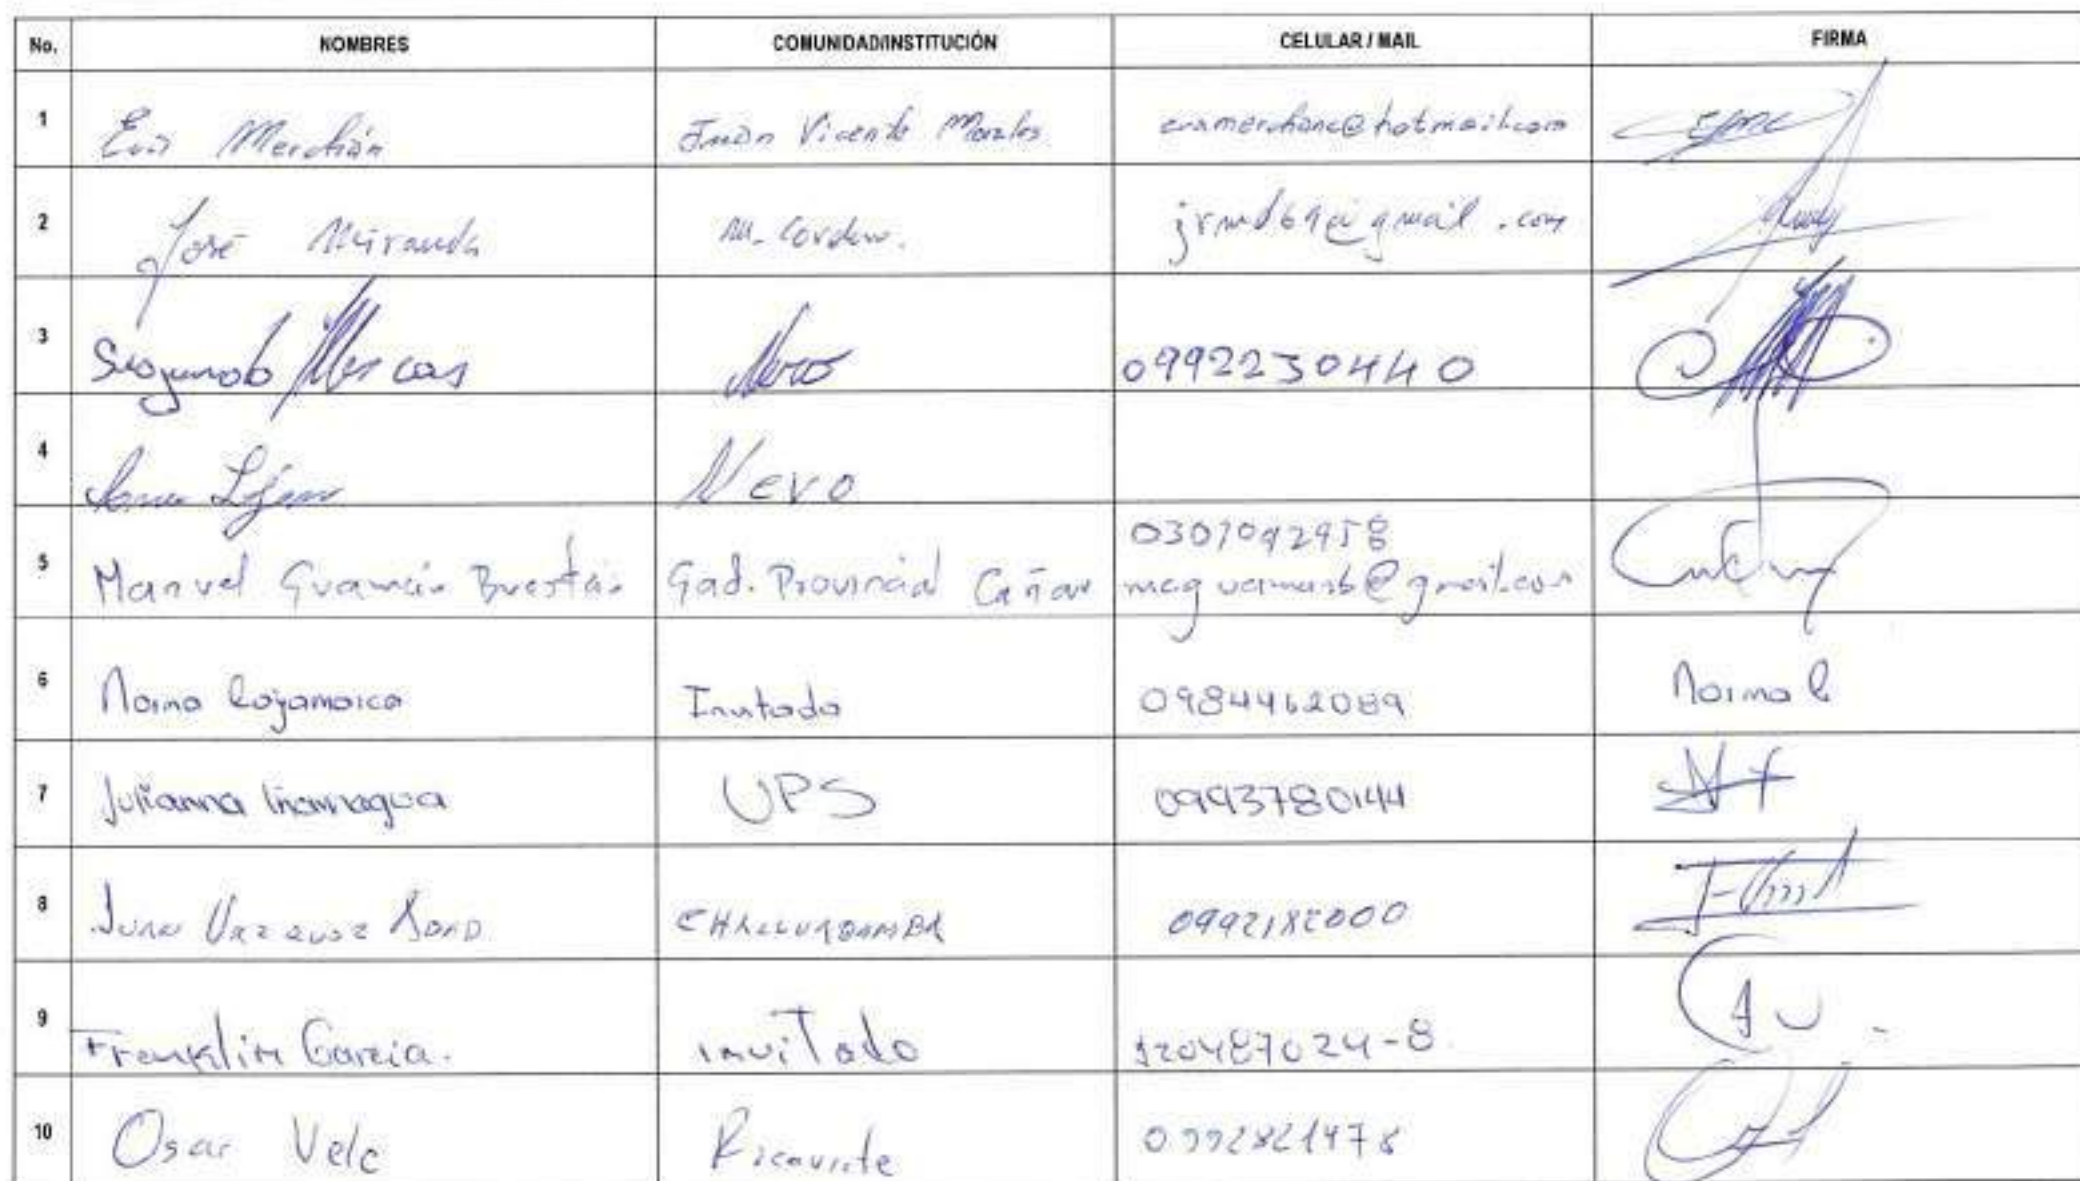 No. NOMBRES COMUNIDAD/INSTITUCIÓN CELULAR / MAIL FIRMA
1 Eva Merchán Juan Vicente Morales evamerchanc@hotmail.com
2 José Miranda M. Cordero. jrmd69@gmail.com
3 Segundo Nero 0992230440
4 Nero
5 Manuel Guamán Buestán Gad. Provincial Cañar 0301092958
mcguamanb@gmail.com
6 Norma Cajamarca Invitada 0984462089 Norma C
7 Julianna Inamagua UPS 0993780144
8 Juan Vazquez CHALLUABAMBA 0992182000
9 Franklin Garcia. invitado 120487024-8
10 Osar Vele Ricaurte 0992821478